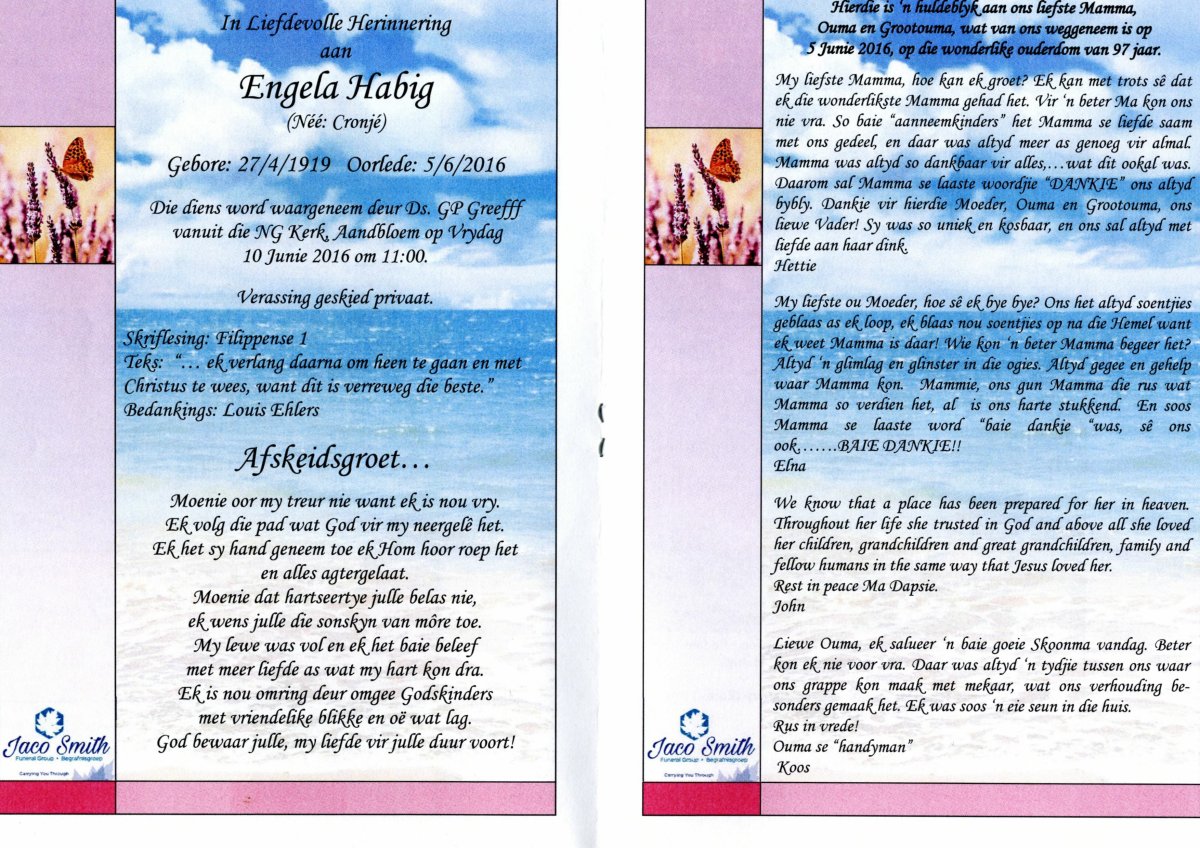 In Liefdevolle Herinnering
aan
Engela Habig
(Néé: Cronjé)
Gebore: 27/4/1919 Oorlede: 5/6/2016
Die diens word waargeneem deur Ds. GP Greefff
vanuit die NG Kerk, Aandbloem op Vrydag
10 Junie 2016 om 11:00.
Verassing geskied privaat.
Skriflesing: Filippense 1
Teks: “… ek verlang daarna om heen te gaan en met
Christus te wees, want dit is verreweg die beste.”
Bedankings: Louis Ehlers
Afskeidsgroet…
Moenie oor my treur nie want ek is nou vry.
Ek volg die pad wat God vir my neergelê het.
Ek het sy hand geneem toe ek Hom hoor roep het
en alles agtergelaat.
Moenie dat hartseertye julle belas nie,
ek wens julle die sonskyn van môre toe.
My lewe was vol en ek het baie beleef
met meer liefde as wat my hart kon dra.
Ek is nou omring deur omgee Godskinders
met vriendelike blikke en oë wat lag.
God bewaar julle, my liefde vir julle duur voort!
Jaco Smith
Funeral Group • Begrafnisgroep
Carrying You Through
Hierdie is ‘n huldeblyk aan ons liefste Mamma,
Ouma en Grootouma, wat van ons weggeneem is op
5 Junie 2016, op die wonderlike ouderdom van 97 jaar.
My liefste Mamma, hoe kan ek groet? Ek kan met trots sê dat
ek die wonderlikste Mamma gehad het. Vir ‘n beter Ma kon ons
nie vra. So baie “aanneemkinders” het Mamma se liefde saam
met ons gedeel, en daar was altyd meer as genoeg vir almal.
Mamma was altyd so dankbaar vir alles,…wat dit ookal was.
Daarom sal Mamma se laaste woordjie “DANKIE” ons altyd
bybly. Dankie vir hierdie Moeder, Ouma en Grootouma, ons
liewe Vader! Sy was so uniek en kosbaar, en ons sal altyd met
liefde aan haar dink.
Hettie
My liefste ou Moeder, hoe sê ek bye bye? Ons het altyd soentjies
geblaas as ek loop, ek blaas nou soentjies op na die Hemel want
ek weet Mamma is daar! Wie kon ‘n beter Mamma begeer het?
Altyd ‘n glimlag en glinster in die ogies. Altyd gegee en gehelp
waar Mamma kon. Mammie, ons gun Mamma die rus wat
Mamma so verdien het, al is ons harte stukkend. En soos
Mamma se laaste word “baie dankie “was, sê ons
ook…….BAIE DANKIE!!
Elna
We know that a place has been prepared for her in heaven.
Throughout her life she trusted in God and above all she loved
her children, grandchildren and great grandchildren, family and
fellow humans in the same way that Jesus loved her.
Rest in peace Ma Dapsie.
John
Liewe Ouma, ek salueer ‘n baie goeie Skoonma vandag. Beter
kon ek nie voor vra. Daar was altyd ‘n tydjie tussen ons waar
ons grappe kon maak met mekaar, wat ons verhouding be-
sonders gemaak het. Ek was soos ‘n eie seun in die huis.
Rus in vrede!
Ouma se “handyman”
Koos
Jaco Smith
Funeral Group • Begrafnisgroep
Carrying You Through